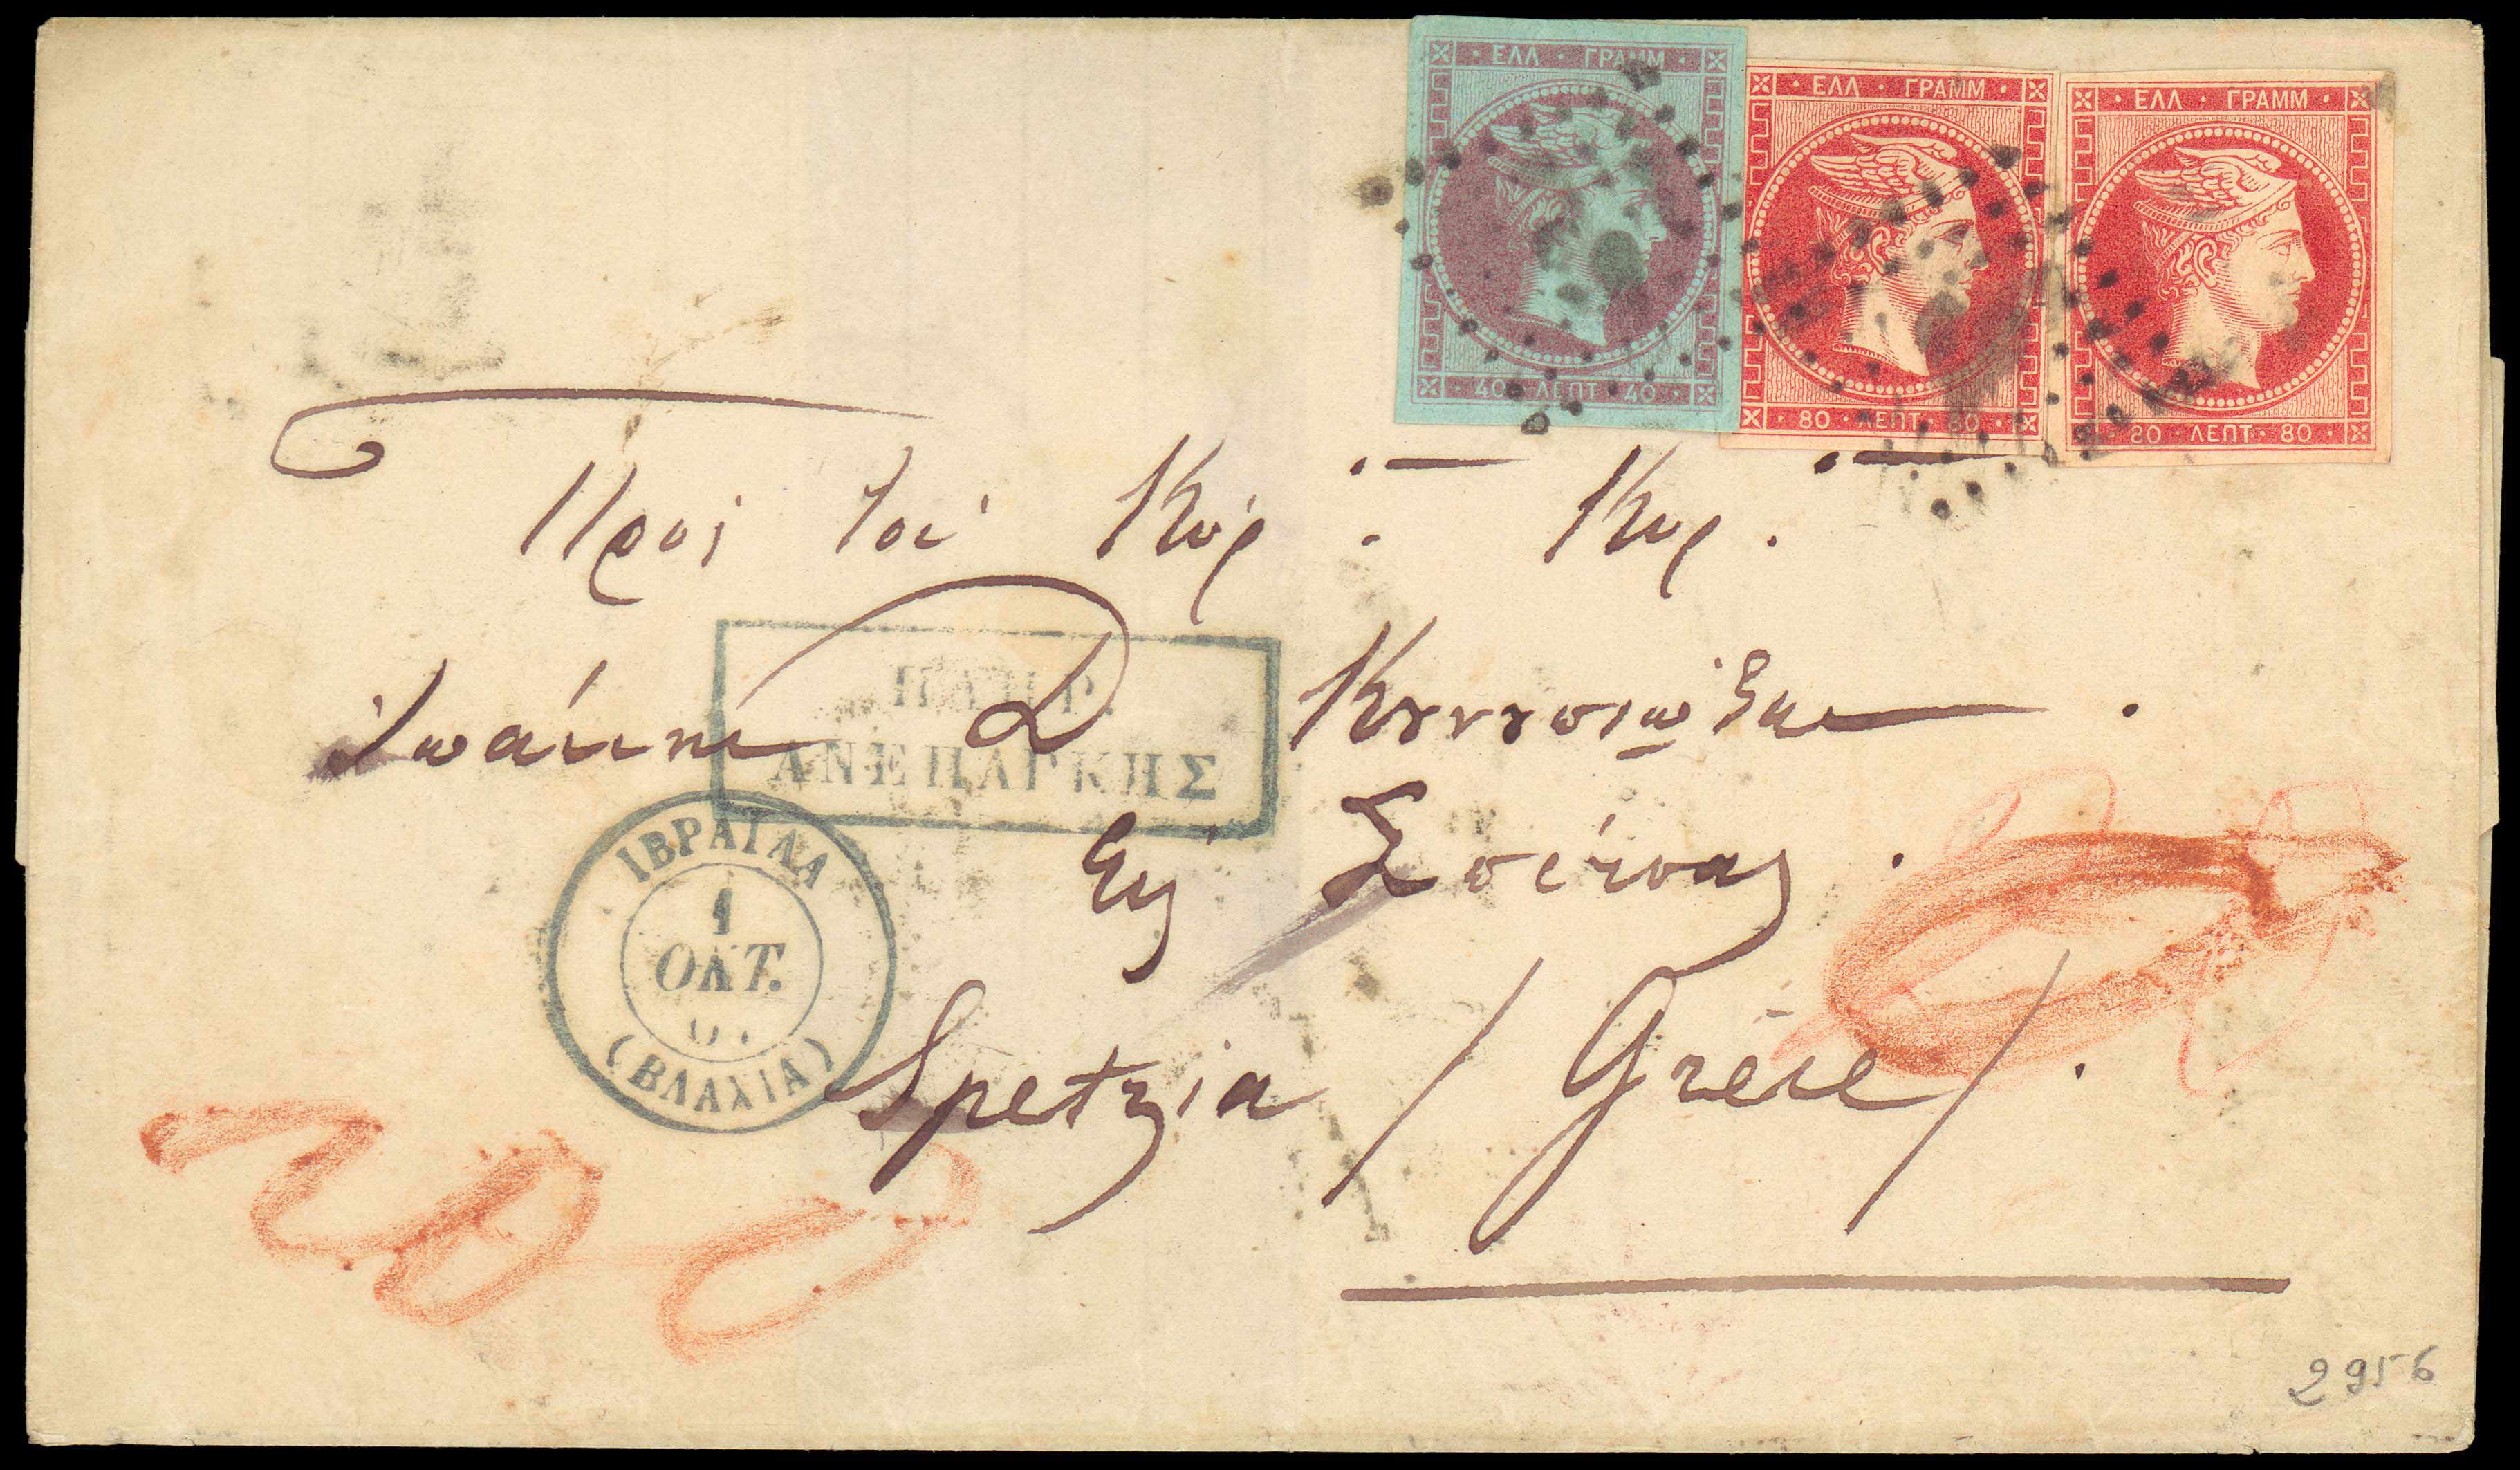 · ΕΛΛ · ΓΡΑΜΜ ·
· 40 · ΛΕΠΤ · 40 ·
· ΕΛΛ · ΓΡΑΜΜ ·
· 80 · ΛΕΠΤ · 80 ·
· ΕΛΛ · ΓΡΑΜΜ ·
· 80 · ΛΕΠΤ · 80 ·
Πρὸς τὸν Κύρ: Κυρ.
Ἰωάννην Δ
ΠΛΗΡ.
ΑΝΕΠΑΡΚΗΣ
Εἰς Σπέτσας.
ΙΒΡΑΪΛΑ
1
ΟΚΤ.
(ΒΛΑΧΙΑ)
Spetzia / Grèce /.
200
2956